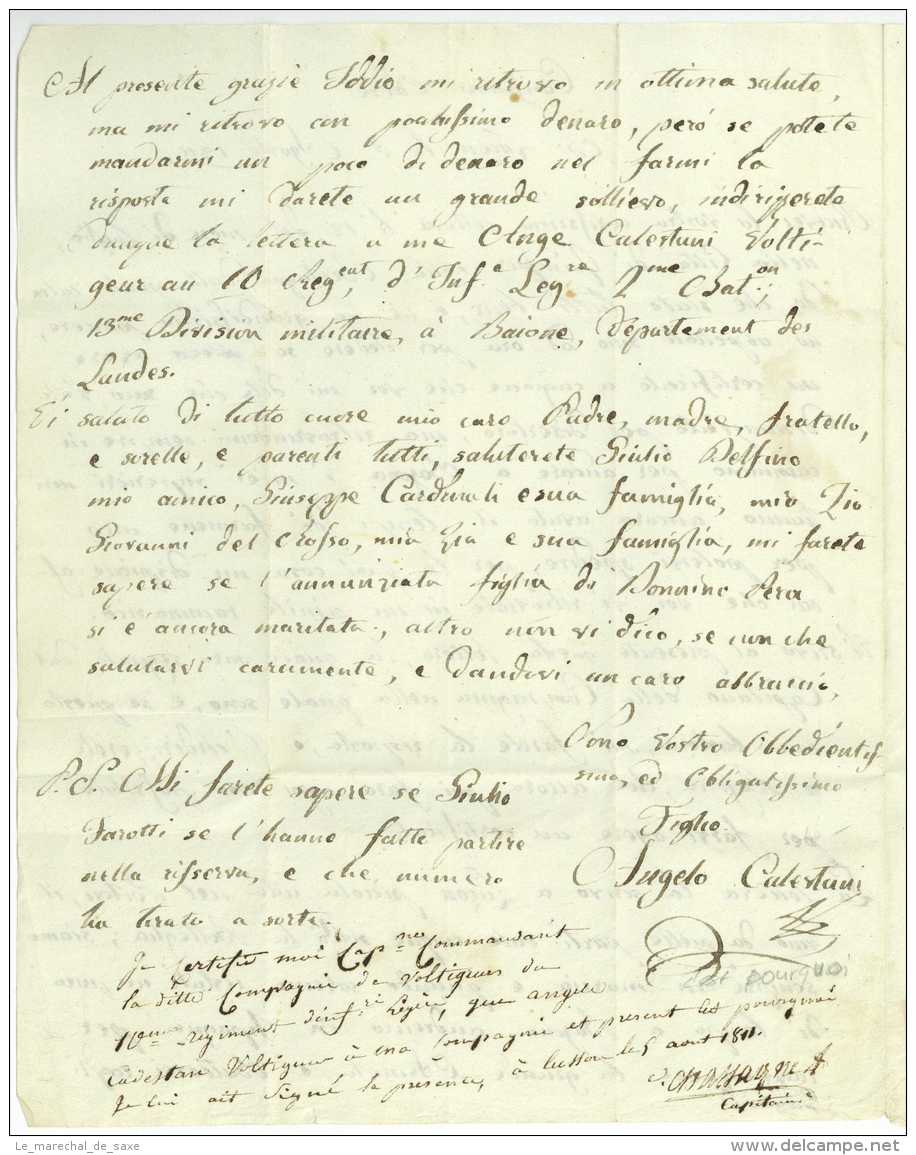 Al presente grazie Iddio mi ritrovo in ottima salute,
ma mi ritrovo con pochissimo denaro, però se potete
mandarmi un poco di denaro nel farmi la
risposta mi darete un grande sollievo, indirizzerete
dunque la lettera a me Ange Calestani Volti-
geur au 10 Regent, d'Infe Legre 2me Baton;
13me Division militaire, à Baione, Departement des
Landes.
Vi saluto di tutto cuore mio caro Padre, madre, fratello,
e sorelle, e parenti tutti, saluterete Giulio Delfino
mio amico, Giuseppe Cardinali e sua famiglia, mio Zio
Giovanni del Rosso, mia Zia e sua famiglia, mi farete
sapere se l'annunziata figlia di Bonnino Pera
si è ancora maritata, altro non vi dico, se non che
salutarvi caramente, e dandovi un caro abbraccio,
Sono Vostro Obbedientis
simo, ed Obligatissimo
Figlio
Angelo Calestani
P.S. Mi farete sapere se Giulio
Tarotti se l'hanno fatto partire
nella risserva, e che numero
ha tirato a sorte.
Je certifie moi Capne Commandant
la ditte Compagnie de Voltigeurs du
10eme régiment d'infrie légère, que angelo
Cadestan Voltigeur à ma Compagnie et présent les pourquoi
Je lui ait Signé la presence, à le 5 aout 1811.
Chassagne
Capitaine
pourquoi
Le_marechal_de_saxe
www.delcampe.net